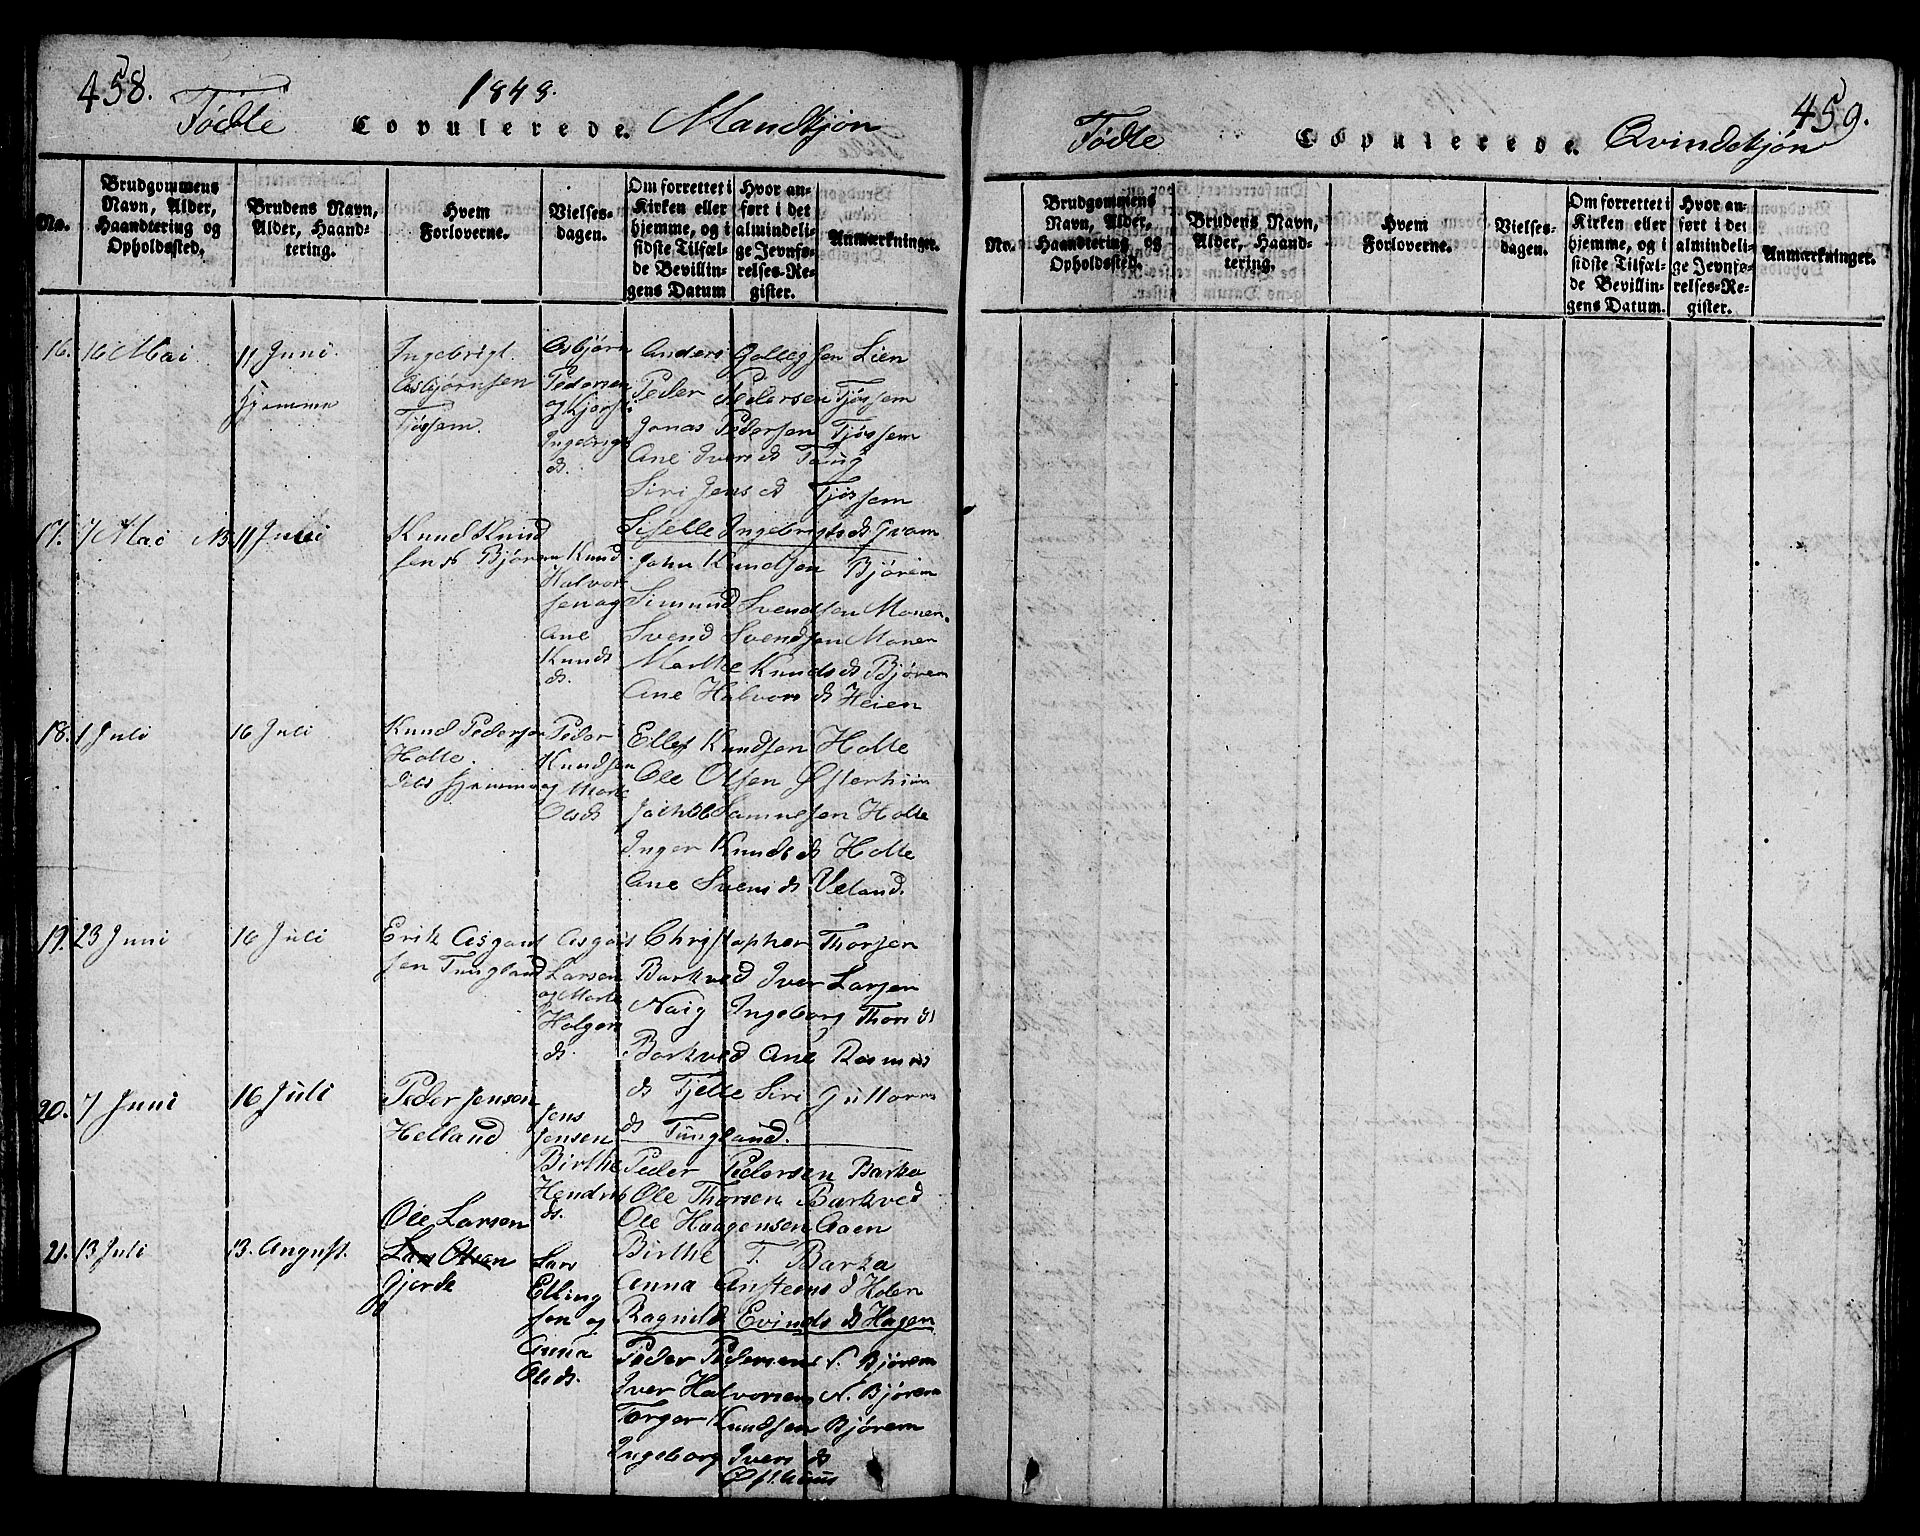 458.
1848.
Fødte Copulerede. Mandkjøn
No.
Brudgommens
Navn, Alder,
Haandtering og
Opholdssted.
Brudens Navn,
Alder, Haand-
tering.
Hvem
Forloverne.
Vielses-
dagen.
Om forrettet i
Kirken eller
hjemme, og i
sidste Tilfæl-
de Bevillin-
gens Datum
Hvor an-
ført i det
almindeli-
ge Jevnfø-
relses-Re-
gister.
Anmærkninger.
16. 16 Mai
11 Juni
Hjemme
Ingebrigt
Asbjørnsen
Tjøssem
Asbjørn
Pedersen
og Kjersti
Ingebrigts
d.
Anders Gollegsen Lien
Peder Pedersen Tjøssem
Jonas Pedersen Tjøssem
Ane Ivers d Taug
Siri Jens d Tjøssem
Siselle Ingebrigts d Gram
17. 7 Mai
NB 11 Juni
Knud Knud
sen N Bjørem
Knud
Halvor
sen og
Ane
Knuds
d.
John Knudsen Bjørem
Simund Svendsen Monen.
Svend Svendsen Monen
Marthe Knuds d Bjørem
Ane Halvors d Heien
18. 1 Juli
16 Juli
Knud Pedersen
Holte.
Peder
Knudsen
og Marte
Olsd
Ellef Knudsen Holte
Ole Olsen Østerhuus
Samuelsen Holte
Inger Knuds d Holte
Ane Svens d Veland.
19. 23 Juni
16 Juli
Erik Asgaut
sen Tungland
Asgaut
Larsen
og Marte
Holger
d.
Christopher Thorsen
Barkved Iver Larsen
Naig Ingeborg Thors d
Barkved Ane Rasmus
d Tjelte Siri Guttorms
d Tungland.
20. 7 Juni
16 Juli
Peder Jensen
Helland
Jens
Jensen
Birthe
Hendriks
ds.
Peder Pedersen Barka
Ole Thorsen Barkved
Ole Haagensen Aaen
Birthe T. Barka
Anna Ansteens d Holen
Ragnild Evinds d Hagen
21. 13 Juli
13. August.
Ole Larsen
Lars Olsen
Gjerde
Lars
Elling
sen og
Anna
Olsds.
Peder Pedersen N. Bjørem
Iver Halvorsen N. Bjørem
Torger Knudsen Bjørem
Ingeborg Ivers d
Østhuus
459.
Fødte Copulerede. Qvindekjøn
No.
Brudgommens
Navn, Alder,
Haandtering og
Opholdssted.
Brudens Navn,
Alder, Haand-
tering.
Hvem
Forloverne.
Vielses-
dagen.
Om forrettet i
Kirken eller
hjemme, og i
sidste Tilfæl-
de Bevillin-
gens Datum.
Hvor an-
ført i det
almindeli-
ge Jevnfø-
relses-Re-
gister.
Anmærkninger.